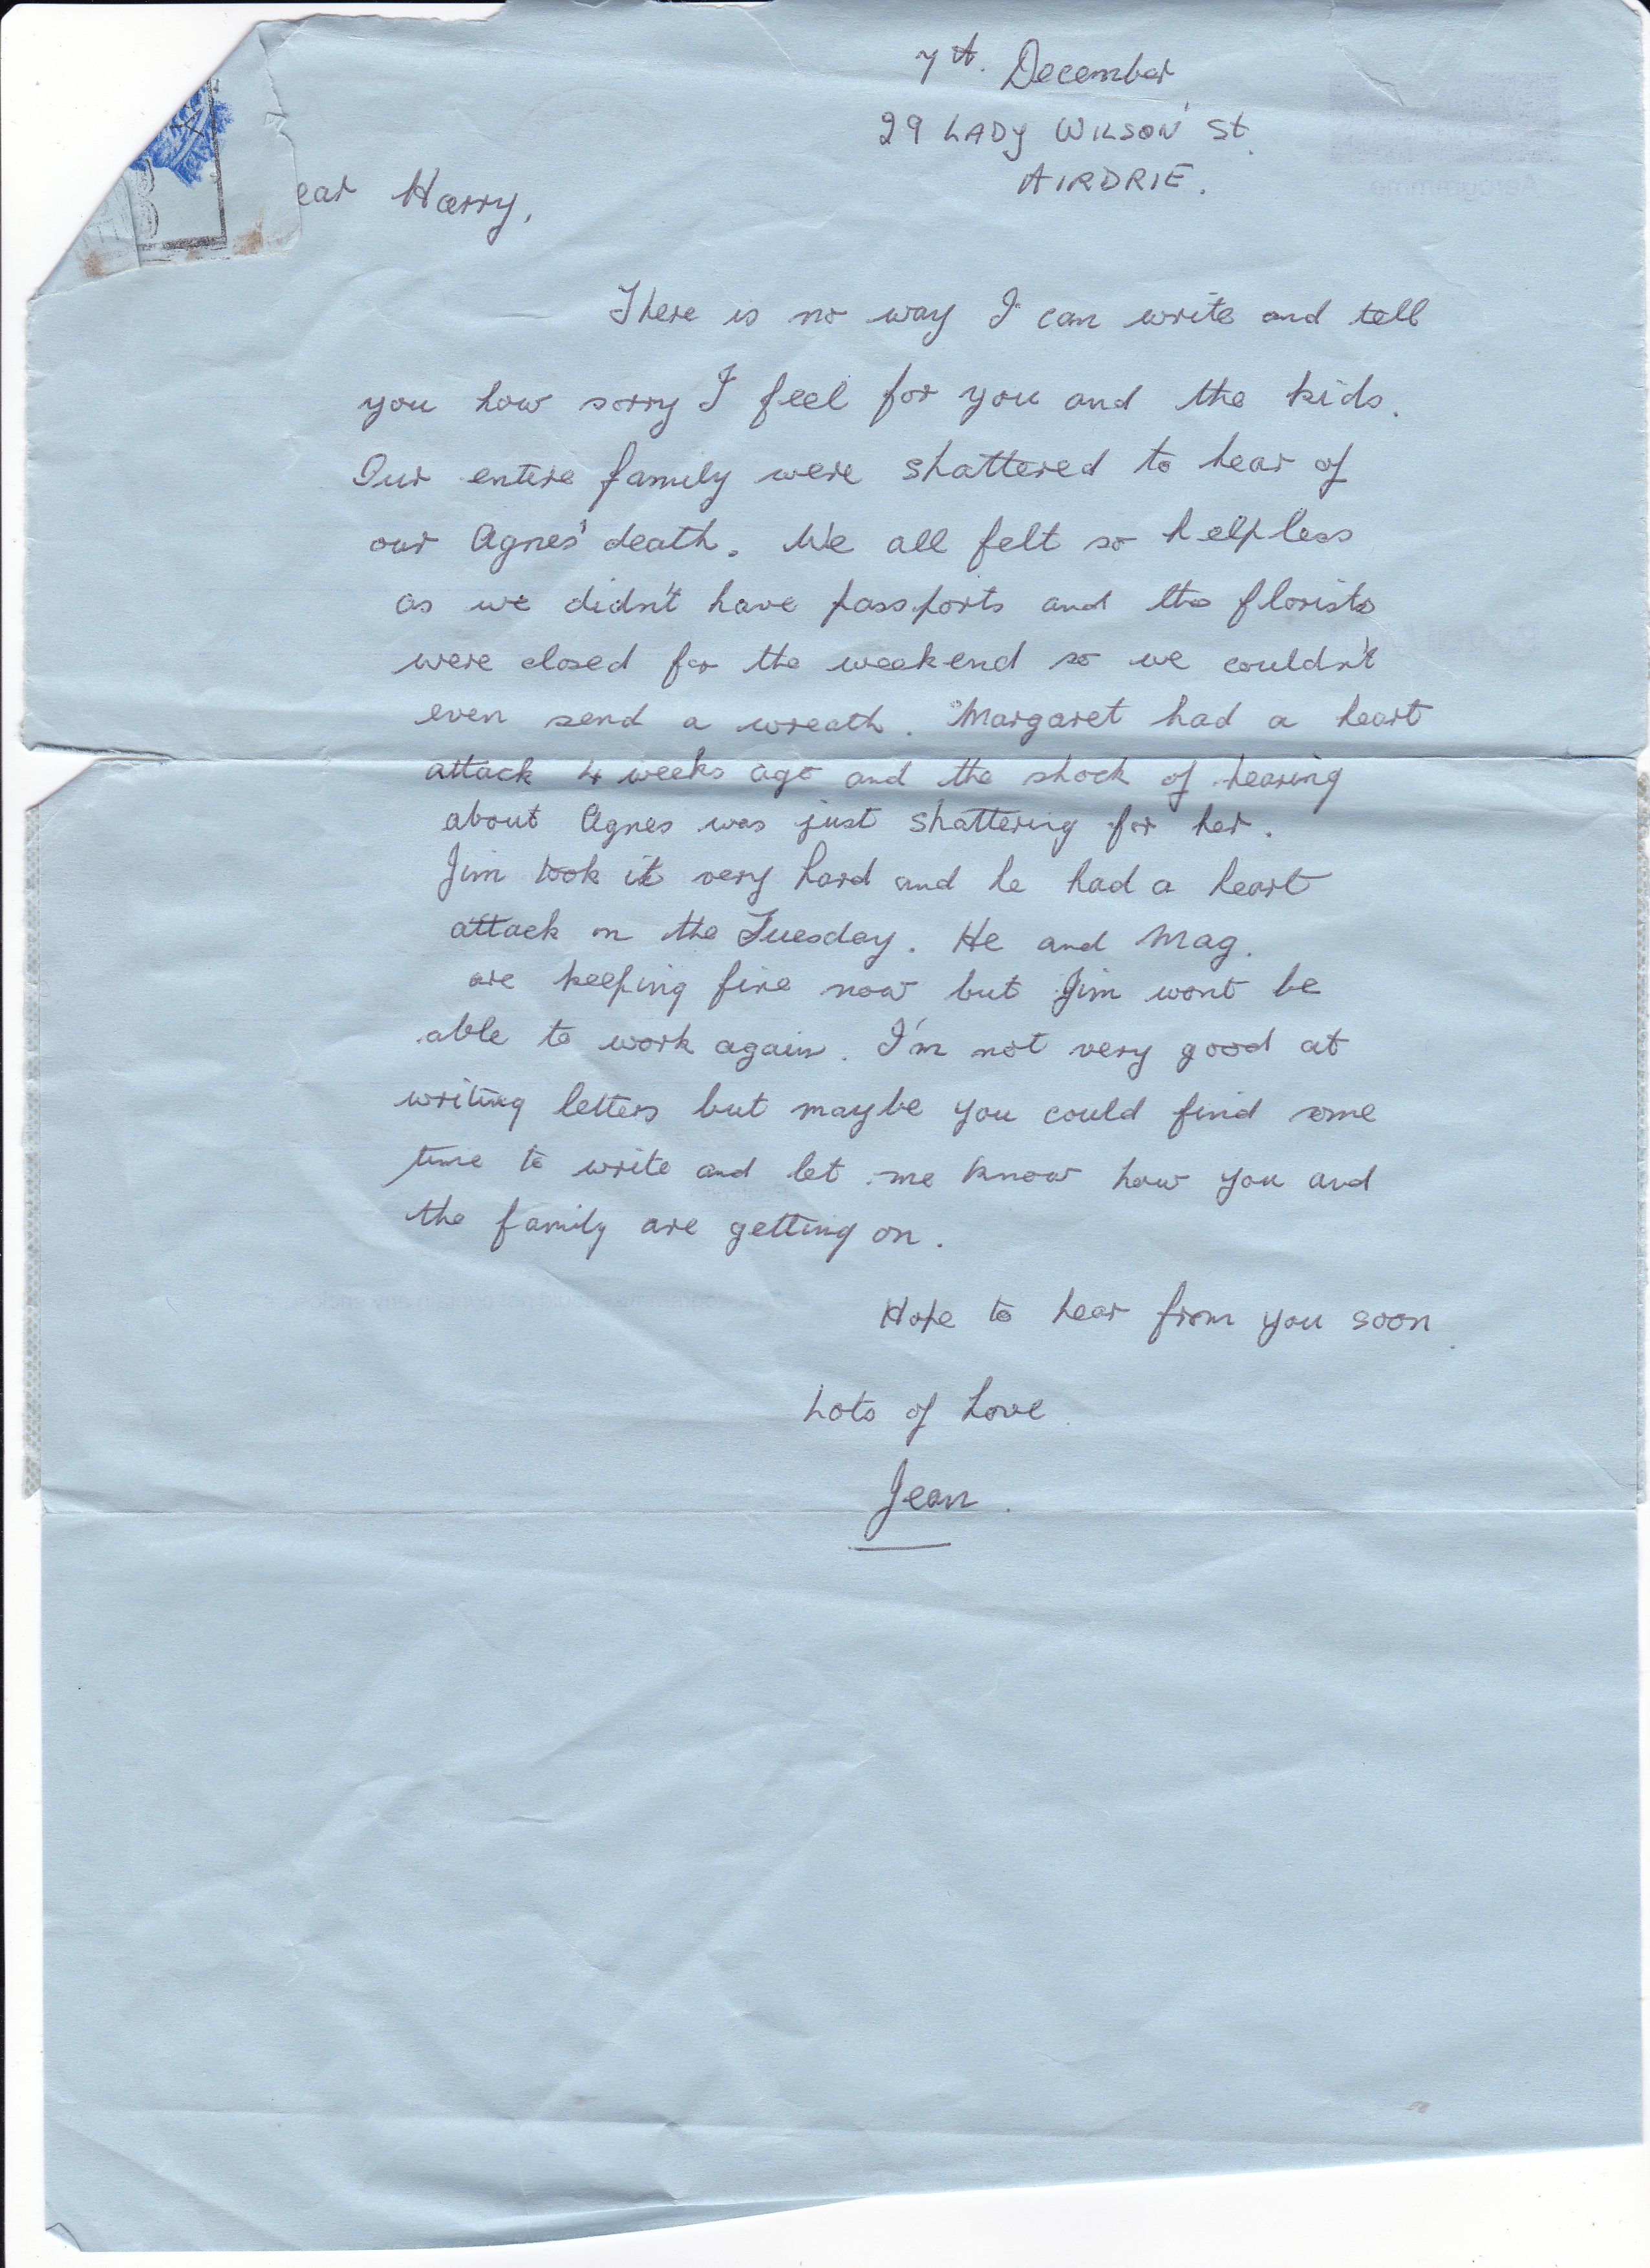 7th. December
29 LADY WILSON St.
AIRDRIE.
ear Harry,
There is no way I can write and tell
you how sorry I feel for you and the kids.
Our entire family were shattered to hear of
our Agnes' death. We all felt so helpless
as we didn't have passports and the florists
were closed for the weekend so we couldn't
even send a wreath. Margaret had a heart
attack 4 weeks ago and the shock of hearing
about Agnes was just shattering for her.
Jim took it very hard and he had a heart
attack on the Tuesday. He and Mag.
are keeping fine now but Jim wont be
able to work again. I'm not very good at
writing letters but maybe you could find some
time to write and let me know how you and
the family are getting on.
Hope to hear from you soon.
Lots of Love.
Jean.